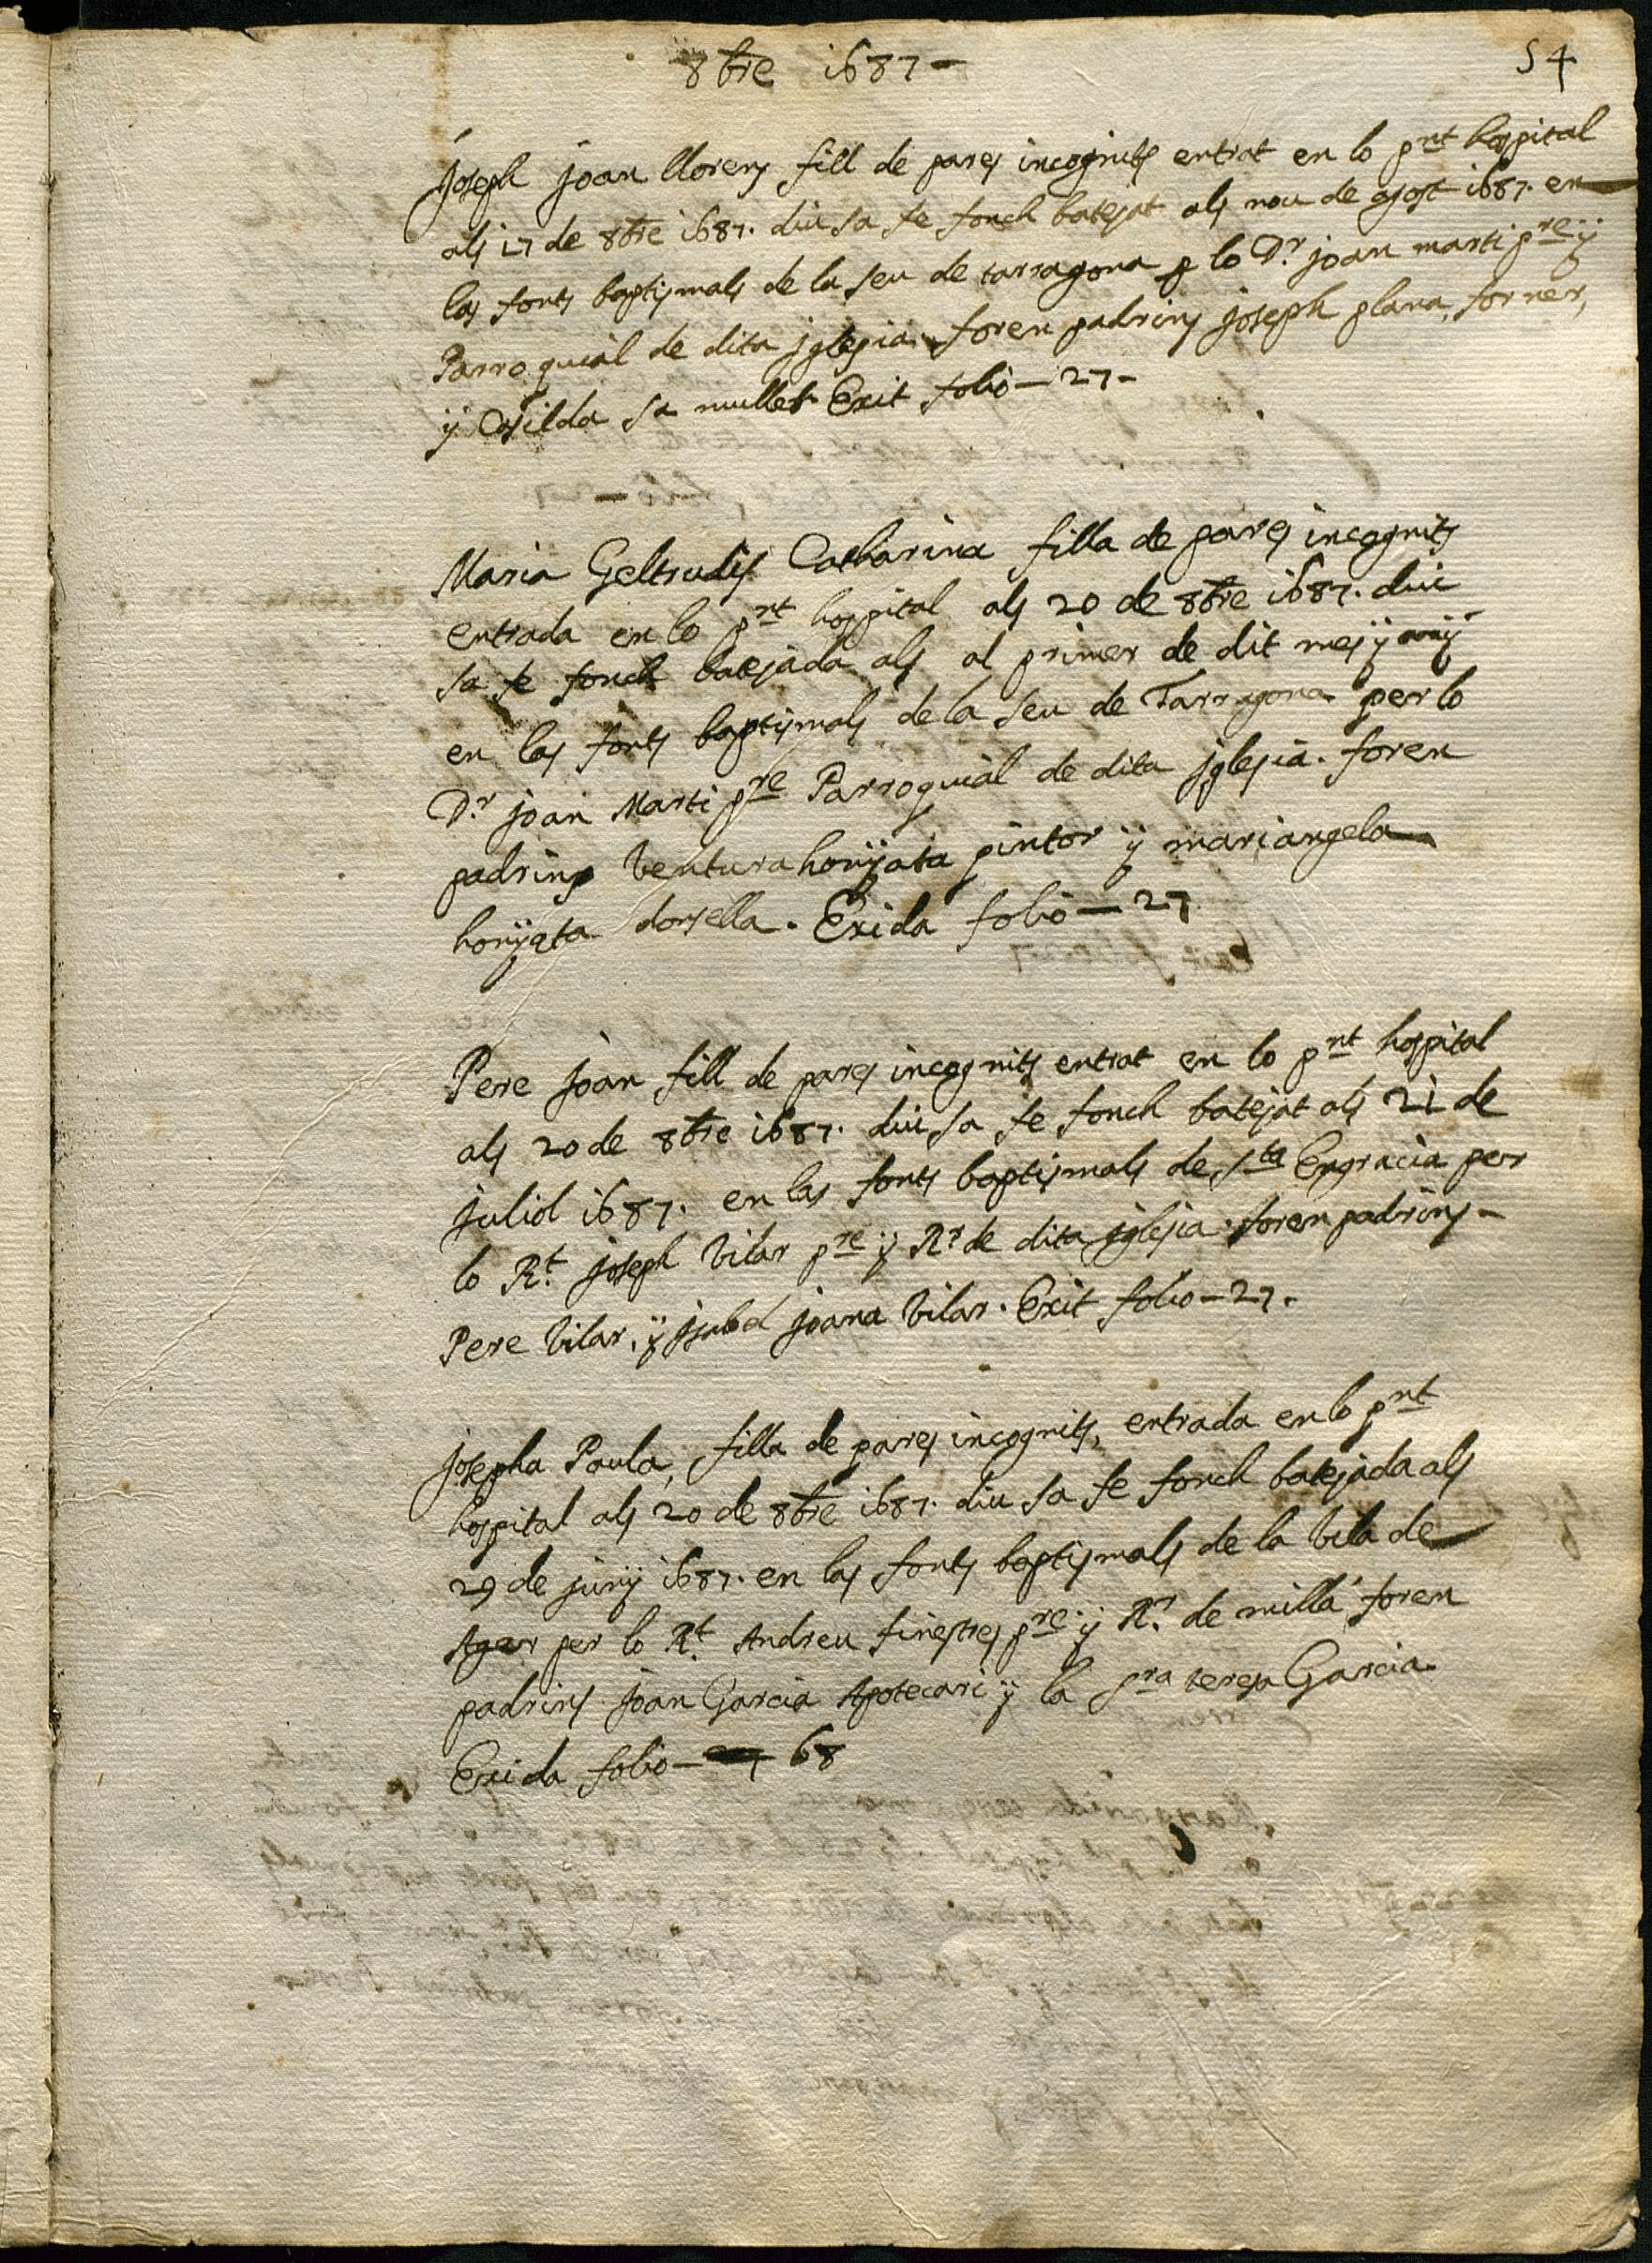 8bre 1687 -
54
Joseph joan llorens fill de pares incognits entrat en lo pnt hospital
als 17 de 8bre 1687. diu sa fe fonch batejat als nou de agost 1687. en
las fonts baptismals de la seu de tarragona p lo Dr. joan marti pre y
Parroquial de dita jglesia foren padrins joseph plana, forner,
y Casilda sa muller Exit folio - 27 -
Maria Geltrudis Catharina filla de pares incognits
entrada en lo pnt hospital als 20 de 8bre 1687. diu
sa fe fonch batejada als al primer de dit mes y any
en las fonts baptismals de la seu de Tarragona per lo
Dr. joan Marti pre Parroquial de dita jglesia. foren
padrins Ventura honyata pintor y mariangela
honyata donsella. Exida folio - 27
Pere joan fill de pares incognits entrat en lo pnt hospital
als 20 de 8bre 1687. diu sa fe fonch batejat als 21 de
juliol 1687. en las fonts baptismals de sta Engracia per
lo Rt. joseph Vilar pre y Rr de dita jglesia. foren padrins -
Pere Vilar, y jsabel joana Vilar. Exit folio - 27.
josepha Paula, filla de pares incognits, entrada en lo pnt
hospital als 20 de 8bre 1687. diu sa fe fonch batejada als
29 de juny 1687. en las fonts baptismals de la Vila de
Ager per lo Rt. Andreu finestres pre y Rr. de milla foren
padrins joan Garcia Apotecari y la sra teresa Garcia
Exida folio - 68